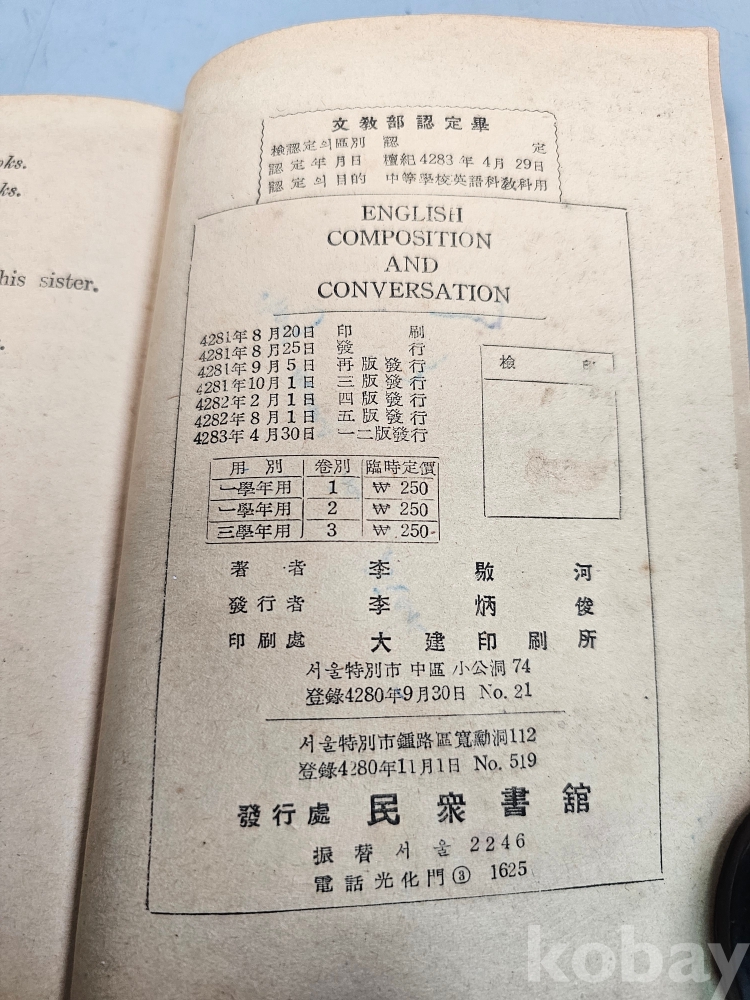 oks.
ks.
his sister.
文敎部認定畢
檢認定의區別 認 定
認定年月日 檀紀4283年4月29日
認定의目的 中等學校英語科敎科用
ENGLISH
COMPOSITION
AND
CONVERSATION
4281年8月20日 印 刷
4281年8月25日 發 行
4281年9月5日 再版發行
4281年10月1日 三版發行
4282年2月1日 四版發行
4282年8月1日 五版發行
4283年4月30日 一二版發行
檢 印
用別 卷別 臨時定價
一學年用 1 ₩ 250
一學年用 2 ₩ 250
三學年用 3 ₩ 250
著者 李敭河
發行者 李炳俊
印刷處 大建印刷所
서울特別市 中區 小公洞 74
登錄4280年9月30日 No. 21
서울特別市鍾路區寬勳洞112
登錄4280年11月1日 No. 519
發行處 民衆書舘
振替서울 2246
電話光化門③ 1625
kobay